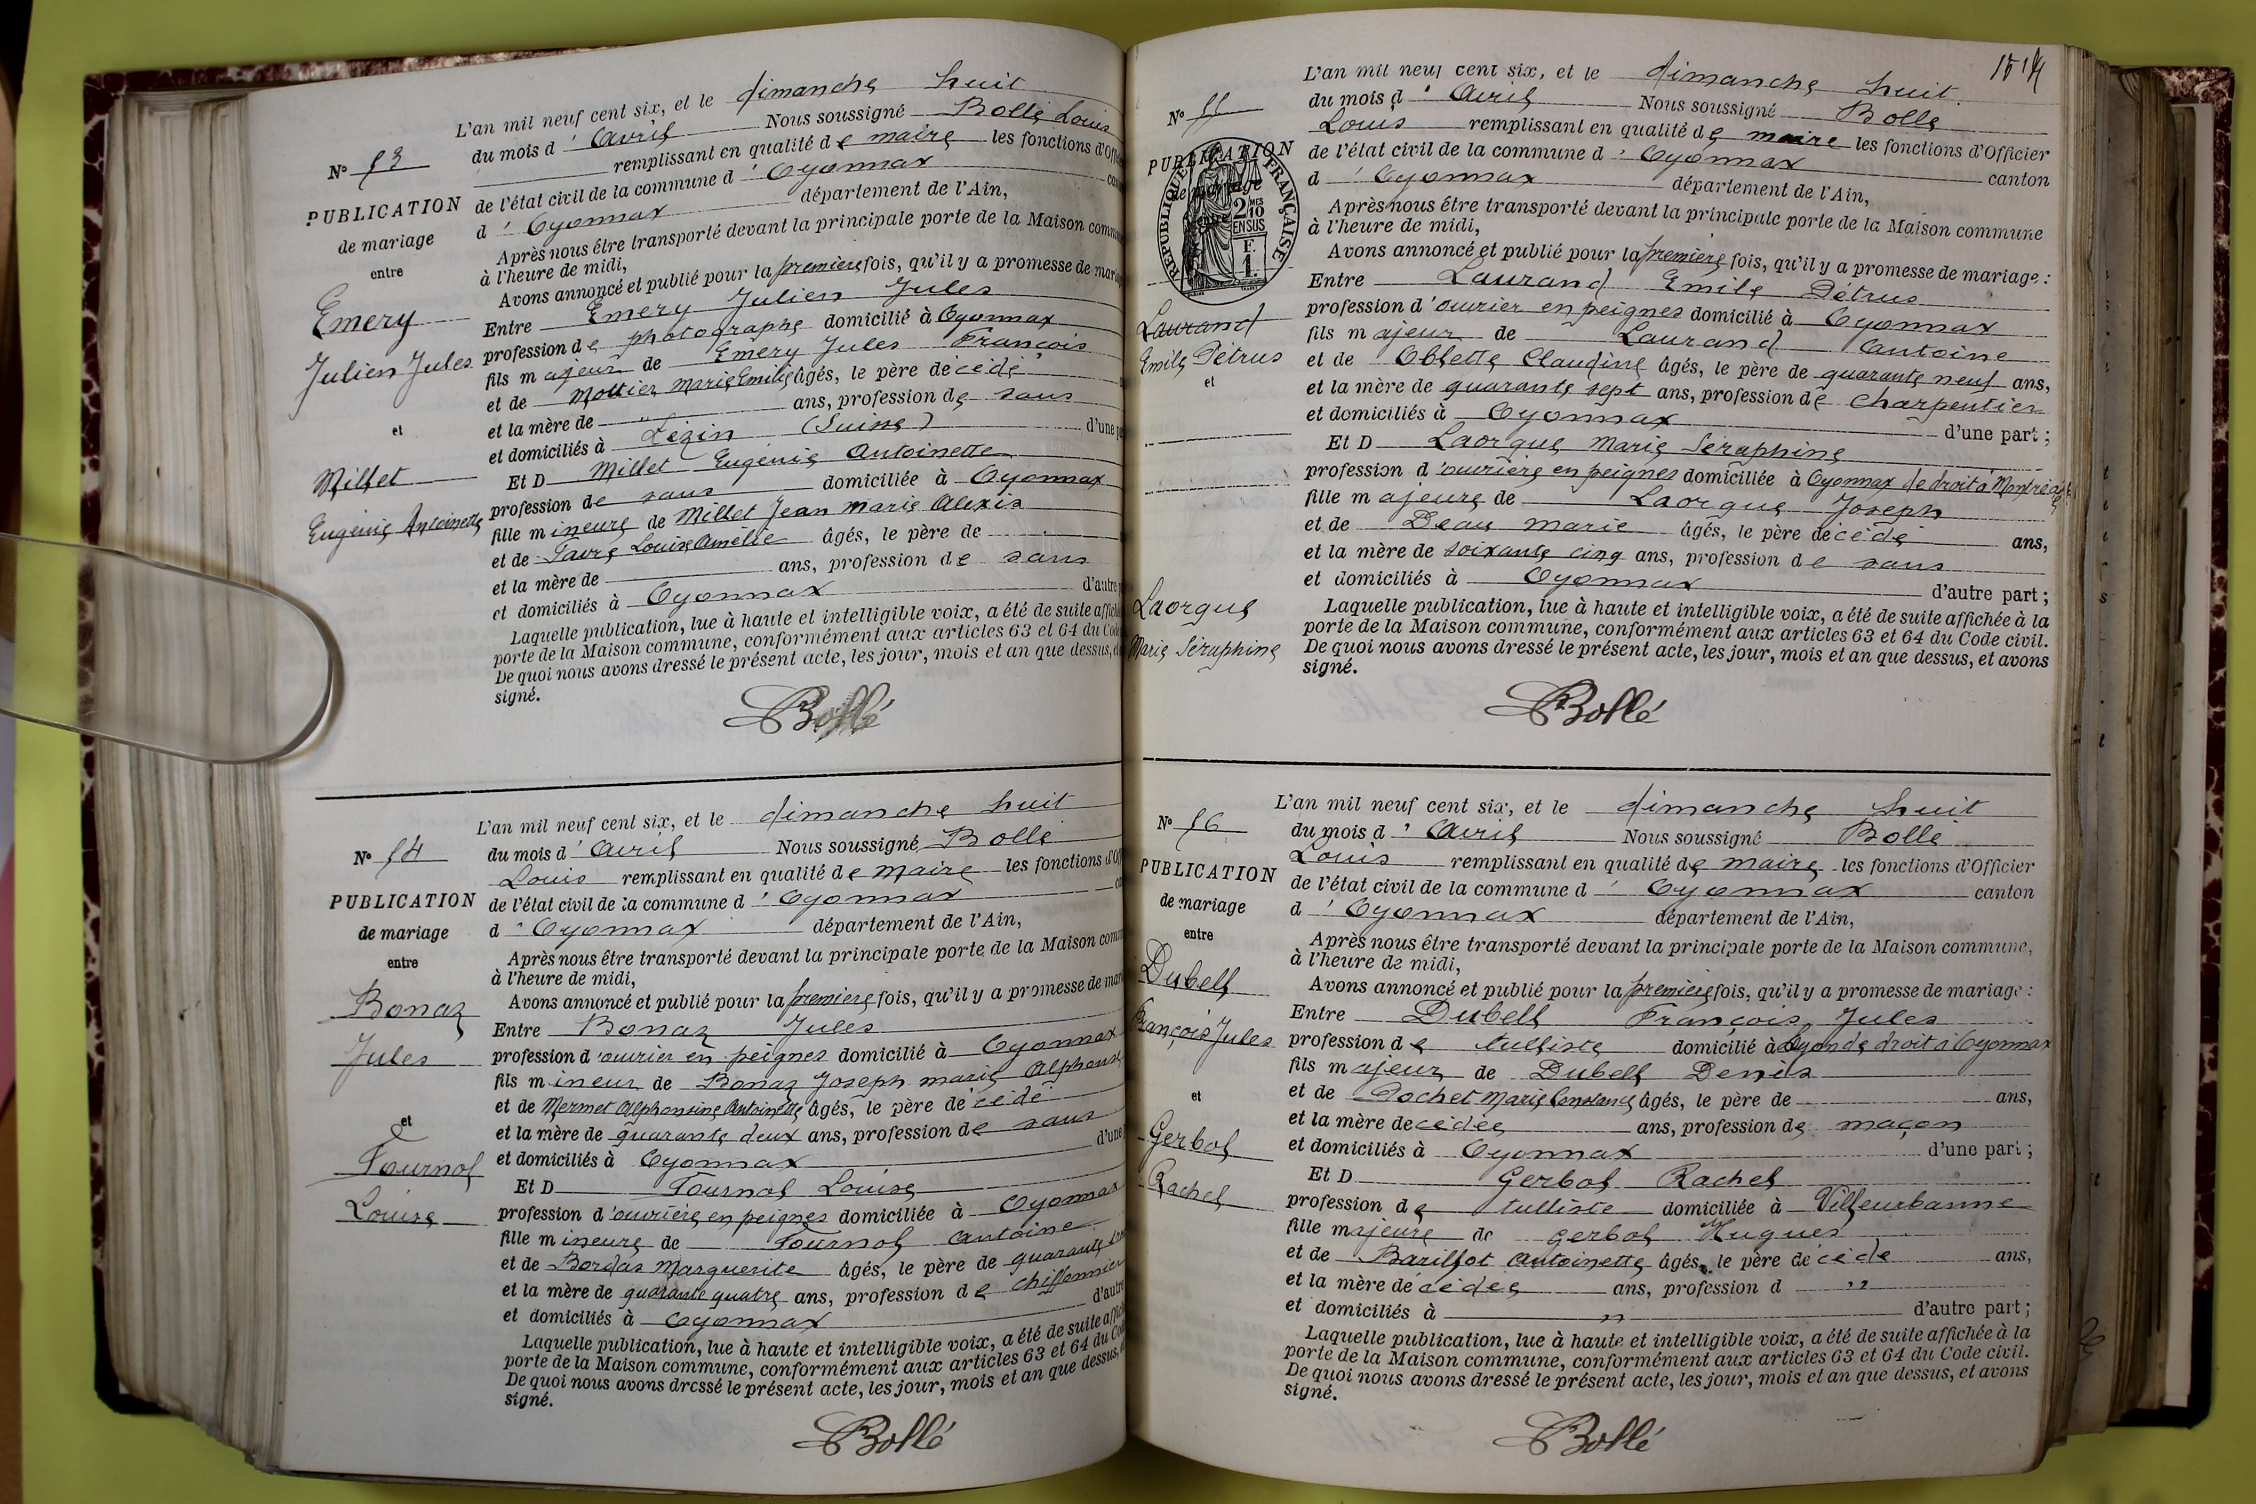 L'an mil neuf cent six, et le dimanche huit
du mois d' Avril Nous soussigné Bollé Louis
remplissant en qualité de maire les fonctions d'Offi
de l'état civil de la commune d' Oyonnax can
d' Oyonnax département de l'Ain,
Après nous être transporté devant la principale porte de la Maison comm
à l'heure de midi,
Avons annoncé et publié pour la première fois, qu'il y a promesse de mar
Entre Emery Julien Jules
profession de photographe domicilié à Oyonnax
fils majeur de Emery Jules François
et de Mottier Marie Emilie âgés, le père décédé
et la mère de " ans, profession de sans
et domiciliés à Lézin (Suisse) d'une p
Et D Millet Eugénie Antoinette
profession de sans domiciliée à Oyonnax
fille mineure de Millet Jean Marie Alexis
et de Favre Louise Amélie âgés, le père de
et la mère de ans, profession de sans
et domiciliés à Oyonnax d'autre
Laquelle publication, lue à haute et intelligible voix, a été de suite affich
porte de la Maison commune, conformément aux articles 63 et 64 du Code
De quoi nous avons dressé le présent acte, les jour, mois et an que dessus,
signé.
Bollé
N° 53
PUBLICATION
de mariage
entre
Emery
Julien Jules
et
Millet
Eugénie Antoinette
L'an mil neuf cent six, et le dimanche huit
du mois d' Avril Nous soussigné Bollé
Louis remplissant en qualité de maire les fonctions d'Of
de l'état civil de la commune d' Oyonnax
d' Oyonnax département de l'Ain,
Après nous être transporté devant la principale porte de la Maison comm
à l'heure de midi,
Avons annoncé et publié pour la première fois, qu'il y a promesse de mar
Entre Bonaz Jules
profession d'ouvrier en peignes domicilié à Oyonnax
fils mineur de Bonaz Joseph Marie Alphonse
et de Mermet Alphonsine Antoinette âgés, le père décédé
et la mère de quarante deux ans, profession de sans
et domiciliés à Oyonnax d'une
Et D Fournol Louise
profession d'ouvrière en peignes domiciliée à Oyonnax
fille mineure de Fournol Antoine
et de Bordas Marguerite âgés, le père de quarante
et la mère de quarante quatre ans, profession de chiffonnier
et domiciliés à Oyonnax d'autre
Laquelle publication, lue à haute et intelligible voix, a été de suite affich
porte de la Maison commune, conformément aux articles 63 et 64 du Cod
De quoi nous avons dressé le présent acte, les jour, mois et an que dessus,
signé.
Bollé
N° 54
PUBLICATION
de mariage
entre
Bonaz
Jules
et
Fournol
Louise
L'an mil neuf cent six, et le dimanche huit
du mois d' Avril Nous soussigné Bollé
Louis remplissant en qualité de maire les fonctions d'Officier
de l'état civil de la commune d' Oyonnax
d' Oyonnax département de l'Ain, canton
Après nous être transporté devant la principale porte de la Maison commune
à l'heure de midi,
Avons annoncé et publié pour la première fois, qu'il y a promesse de mariage :
Entre Laurand Emile Pétrus
profession d'ouvrier en peignes domicilié à Oyonnax
fils majeur de Laurand Antoine
et de Oblette Claudine âgés, le père de quarante neuf ans,
et la mère de quarante sept ans, profession de charpentier
et domiciliés à Oyonnax d'une part ;
Et D Laorgue Marie Séraphine
profession d'ouvrière en peignes domiciliée à Oyonnax de droit à Montréal
fille majeure de Laorgue Joseph
et de Deau Marie âgés, le père décédé ans,
et la mère de soixante cinq ans, profession de sans
et domiciliés à Oyonnax d'autre part ;
Laquelle publication, lue à haute et intelligible voix, a été de suite affichée à la
porte de la Maison commune, conformément aux articles 63 et 64 du Code civil.
De quoi nous avons dressé le présent acte, les jour, mois et an que dessus, et avons
signé.
Bollé
N° 55
PUBLICATION
de mariage
entre
RÉPUBLIQUE FRANÇAISE
2 MES 10
EN SUS
F.
1.
Laurand
Emile Pétrus
et
Laorgue
Marie Séraphine
L'an mil neuf cent six, et le dimanche huit
du mois d' Avril Nous soussigné Bollé
Louis remplissant en qualité de maire les fonctions d'Officier
de l'état civil de la commune d' Oyonnax canton
d' Oyonnax département de l'Ain,
Après nous être transporté devant la principale porte de la Maison commune,
à l'heure de midi,
Avons annoncé et publié pour la première fois, qu'il y a promesse de mariage :
Entre Dubell François Jules
profession de tulliste domicilié à Lyon de droit à Oyonnax
fils majeur de Dubell Denis
et de Pochet Marie Constance âgés, le père de ans,
et la mère décédée ans, profession de maçon
et domiciliés à Oyonnax d'une part ;
Et D Gerbol Rachel
profession de tulliste domiciliée à Villeurbanne
fille majeure de Gerbol Hugues
et de Barillot Antoinette âgés, le père décédé ans,
et la mère décédée ans, profession d "
et domiciliés à " d'autre part ;
Laquelle publication, lue à haute et intelligible voix, a été de suite affichée à la
porte de la Maison commune, conformément aux articles 63 et 64 du Code civil.
De quoi nous avons dressé le présent acte, les jour, mois et an que dessus, et avons
signé.
Bollé
N° 56
PUBLICATION
de mariage
entre
Dubell
François Jules
et
Gerbol
Rachel